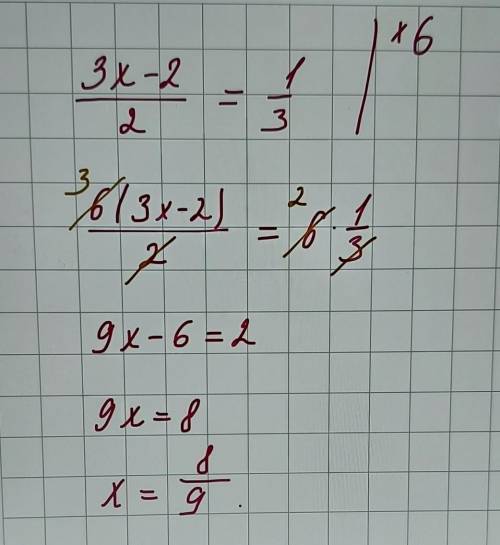 (3x-2)/2 = 1/3 | ×6
³6(3x-2)/2 = ²6 · 1/3
9x-6=2
9x=8
x = 8/9.